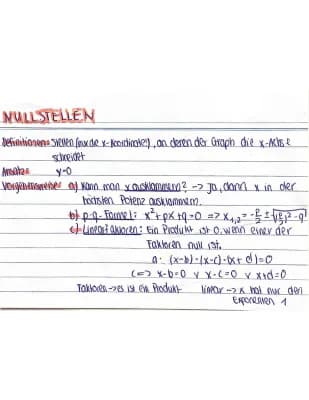 NULLSTELLEN
Definition: Stellen (nur die x-Koordinate), an denen der Graph die x-Achse
schneidet
Ansatz: y=0
Vorgehensweise: a) Kann man x ausklammern? -> Ja, dann x in der
höchsten Potenz ausklammern.
b) p-q-Formel: x²+px+q=0 => x₁,₂=-p/2±√(p/2)²-q
c) Linearfaktoren: Ein Produkt ist 0, wenn einer der
Faktoren null ist.
a·(x-b)·(x-c)·(x+d)=0
<=> x-b=0 ∨ x-c=0 ∨ x+d=0
Faktoren -> es ist ein Produkt linear -> x hat nur den
Exponenten 1